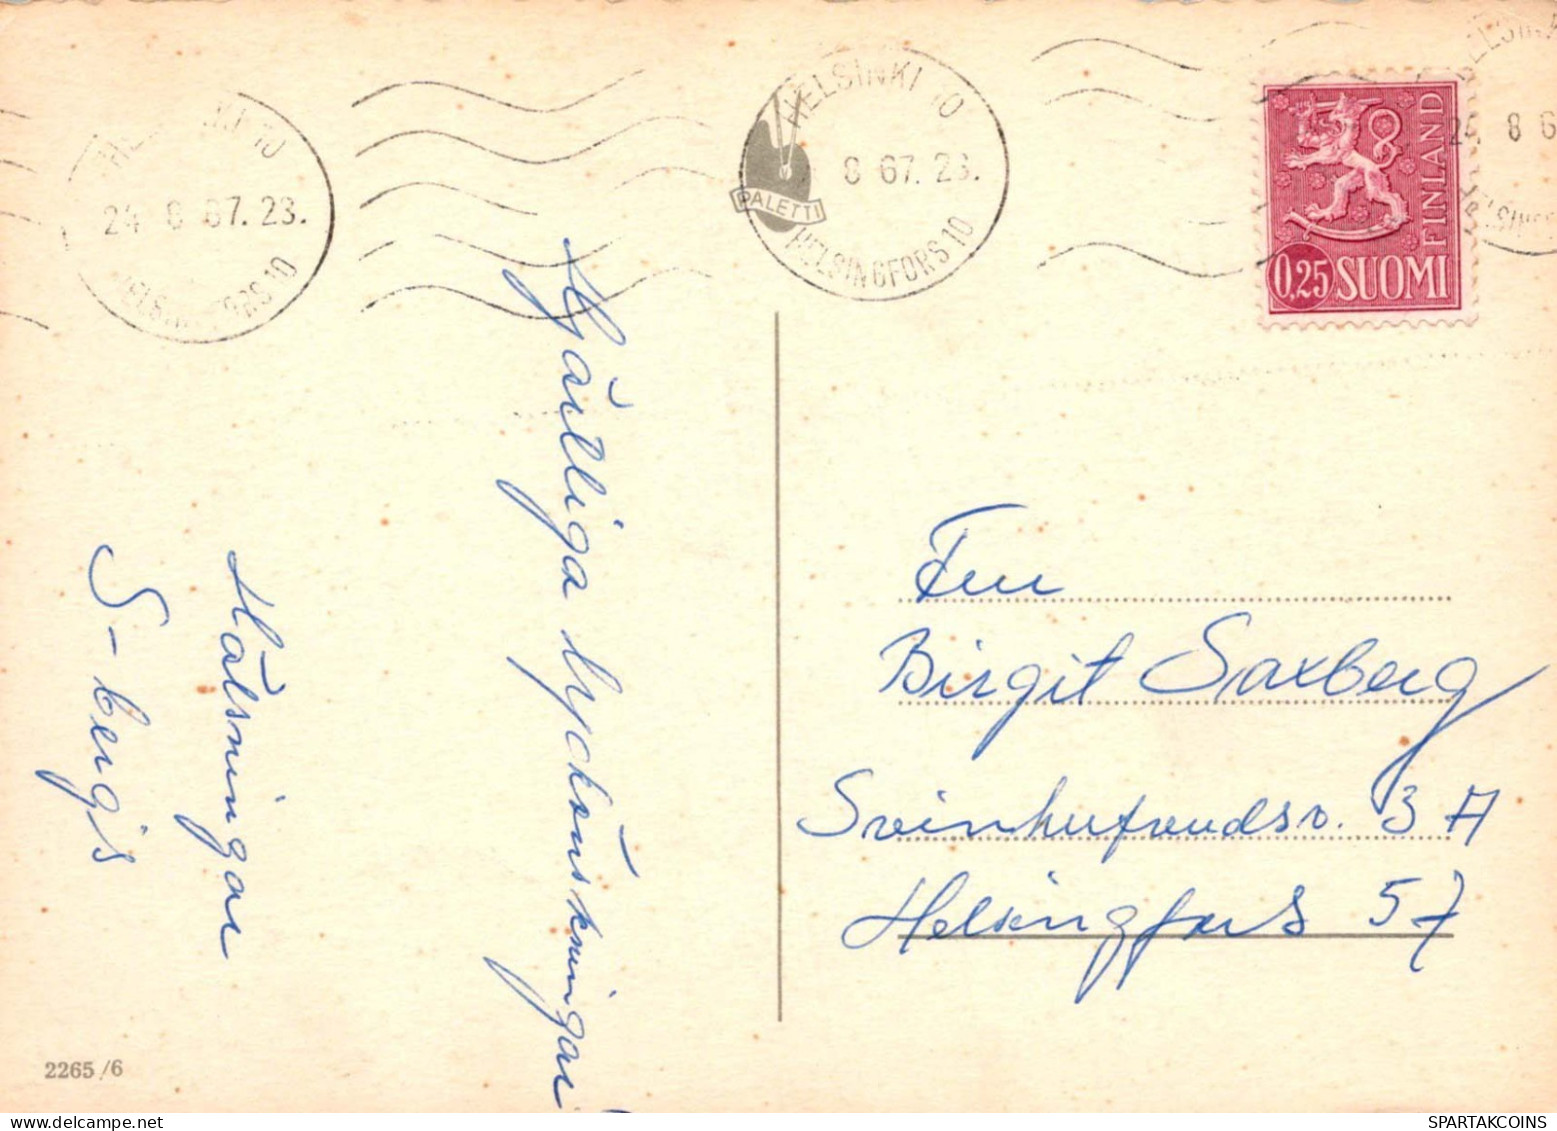 HELSINKI 10
24 8 67. 23.
HELSINGFORS 10
HELSINKI 10
8 67. 23.
HELSINGFORS 10
PALETTI
0,25 SUOMI
FINLAND
24 8 6
Hjärtliga lyckönskningar
Hälsningar
S-bergs
Fru
Birgit Saxberg
Svinhufvudsv. 3 A
Helsingfors 57
2265/6
SPARTAKCOINS